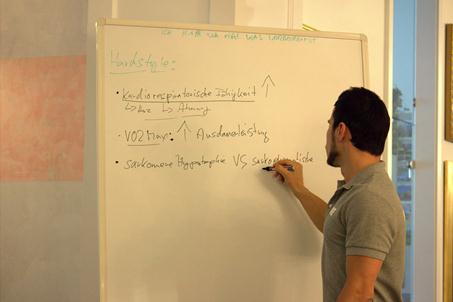 ICH HABE MAL WAS VORBEREITET
Hardstyle:
• Kardiorespiratorische Fähigkeit ↑
↳ Herz ↳ Atmung
• VO2Max: ↑ Ausdauerleistung
• Sarkomere Hypertrophie VS sarkoplasmatische